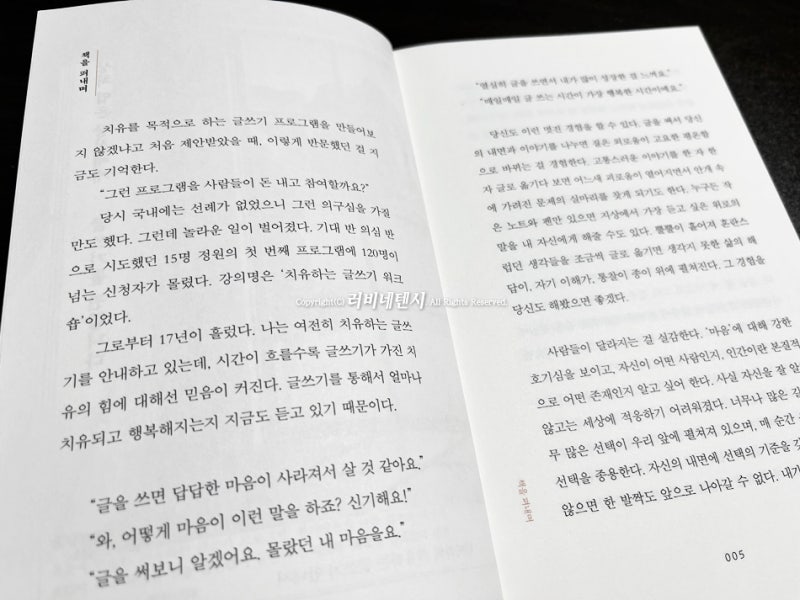 책을 펴내며
치유를 목적으로 하는 글쓰기 프로그램을 만들어보
지 않겠냐고 처음 제안받았을 때, 이렇게 반문했던 걸 지
금도 기억한다.
“그런 프로그램을 사람들이 돈 내고 참여할까요?”
당시 국내에는 선례가 없었으니 그런 의구심을 가질
만도 했다. 그런데 놀라운 일이 벌어졌다. 기대 반 의심 반
으로 시도했던 15명 정원의 첫 번째 프로그램에 120명이
넘는 신청자가 몰렸다. 강의명은 ‘치유하는 글쓰기 워크
숍’이었다.
그로부터 17년이 흘렀다. 나는 여전히 치유하는 글쓰
기를 안내하고 있는데, 시간이 흐를수록 글쓰기가 가진 치
유의 힘에 대해선 믿음이 커진다. 글쓰기를 통해서 얼마나
치유되고 행복해지는지 지금도 듣고 있기 때문이다.
“글을 쓰면 답답한 마음이 사라져서 살 것 같아요.”
“와, 어떻게 마음이 이런 말을 하죠? 신기해요!”
“글을 써보니 알겠어요. 몰랐던 내 마음을요.”
“열심히 글을 쓰면서 내가 많이 성장한 걸 느껴요.”
“매일매일 글 쓰는 시간이 가장 행복한 시간이에요.”
당신도 이런 멋진 경험을 할 수 있다. 글을 써서 당신
의 내면과 이야기를 나누면 짙은 외로움이 고요한 평온함
으로 바뀌는 걸 경험한다. 고통스러운 이야기를 한 자 한
자 글로 옮기다 보면 어느새 괴로움이 옅어지면서 안개 속
에 가려진 문제의 실마리를 찾게 되기도 한다. 누구든 작
은 노트와 펜만 있으면 지상에서 가장 듣고 싶은 위로의
말을 내 자신에게 해줄 수도 있다. 뿔뿔이 흩어져 혼란스
럽던 생각들을 조금씩 글로 옮기면 생각지 못한 삶의 해
답이, 자기 이해가, 통찰이 종이 위에 펼쳐진다. 그 경험을
당신도 해봤으면 좋겠다.
사람들이 달라지는 걸 실감한다. ‘마음’에 대해 강한
호기심을 보이고, 자신이 어떤 사람인지, 인간이란 본질적
으로 어떤 존재인지 알고 싶어 한다. 사실 자신을 잘 알
않고는 세상에 적응하기 어려워졌다. 너무나 많은
무 많은 선택이 우리 앞에 펼쳐져 있으며, 매 순간
선택을 종용한다. 자신의 내면에 선택의 기준을
않으면 한 발짝도 앞으로 나아갈 수 없다. 내가
책을 펴내며
005
Copyright(C) 러비네텐시 All Rights Reserved.